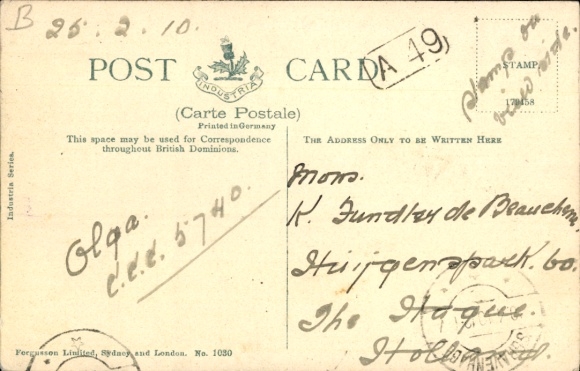 B
25.2.10.
POST CARD
INDUSTRIA
A 49
Stamp on
view side.
STAMP.
(Carte Postale)
Printed in Germany
This space may be used for Correspondence
throughout British Dominions.
THE ADDRESS ONLY TO BE WRITTEN HERE
Industria Series.
Olga.
c.c.c. 5740.
Mons.
K. de
Huijgenspark. 60.
The Hague.
Holland.
Fergusson Limited, Sydney and London. No. 1030